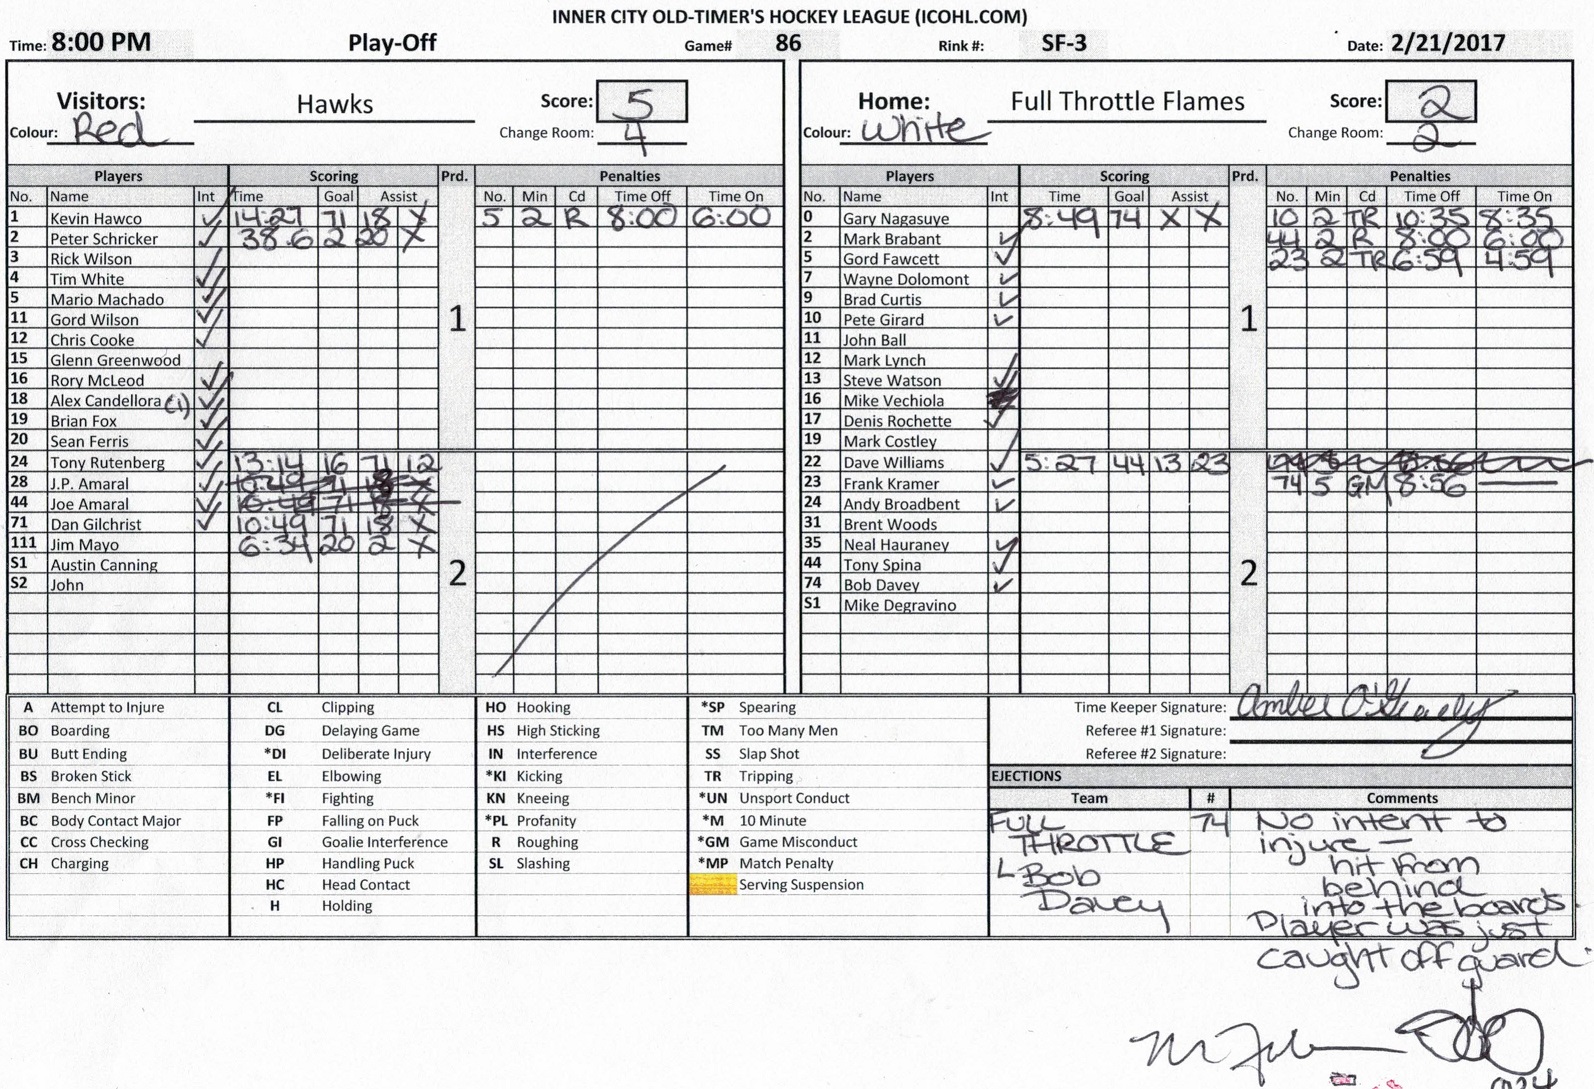 INNER CITY OLD-TIMER'S HOCKEY LEAGUE (ICOHL.COM)
Time: 8:00 PM Play-Off Game# 86 Rink #: SF-3 Date: 2/21/2017
Visitors: Hawks Score: 5
Colour: Red Change Room: 4
Players Scoring Prd. Penalties
No. Name Int Time Goal Assist No. Min Cd Time Off Time On
1 Kevin Hawco ✓ 14:27 71 18 X 5 2 R 8:00 6:00
2 Peter Schricker ✓ 38.6 2 20 X
3 Rick Wilson
4 Tim White ✓
5 Mario Machado ✓
11 Gord Wilson ✓ 1
12 Chris Cooke ✓
15 Glenn Greenwood
16 Rory McLeod ✓
18 Alex Candellora (1) ✓
19 Brian Fox ✓
20 Sean Ferris ✓
24 Tony Rutenberg ✓ 13:14 16 71 12
28 J.P. Amaral ✓ 10:49 71 18 X
44 Joe Amaral ✓ 10:49 71 18 X
71 Dan Gilchrist ✓ 10:49 71 18 X
111 Jim Mayo 6:34 20 2 X
S1 Austin Canning 2
S2 John
Home: Full Throttle Flames Score: 2
Colour: White Change Room: 2
Players Scoring Prd. Penalties
No. Name Int Time Goal Assist No. Min Cd Time Off Time On
0 Gary Nagasuye 8:49 74 X X 10 2 TR 10:35 8:35
2 Mark Brabant ✓ 44 2 R 8:00 6:00
5 Gord Fawcett ✓ 23 2 TR 6:59 4:59
7 Wayne Dolomont ✓
9 Brad Curtis ✓
10 Pete Girard ✓ 1
11 John Ball
12 Mark Lynch
13 Steve Watson ✓
16 Mike Vechiola
17 Denis Rochette ✓
19 Mark Costley
22 Dave Williams ✓ 5:27 44 13 23
23 Frank Kramer ✓ 74 5 GM 8:56
24 Andy Broadbent ✓
31 Brent Woods
35 Neal Hauraney ✓
44 Tony Spina ✓ 2
74 Bob Davey ✓
S1 Mike Degravino
A Attempt to Injure
BO Boarding
BU Butt Ending
BS Broken Stick
BM Bench Minor
BC Body Contact Major
CC Cross Checking
CH Charging
CL Clipping
DG Delaying Game
*DI Deliberate Injury
EL Elbowing
*FI Fighting
FP Falling on Puck
GI Goalie Interference
HP Handling Puck
HC Head Contact
H Holding
HO Hooking
HS High Sticking
IN Interference
*KI Kicking
KN Kneeing
*PL Profanity
R Roughing
SL Slashing
*SP Spearing
TM Too Many Men
SS Slap Shot
TR Tripping
*UN Unsport Conduct
*M 10 Minute
*GM Game Misconduct
*MP Match Penalty
Serving Suspension
Time Keeper Signature: Amber
Referee #1 Signature:
Referee #2 Signature:
EJECTIONS
Team # Comments
FULL 74 No intent to
THROTTLE injure -
hit from
L Bob behind
Davey into the boards.
Player was just
caught off guard.